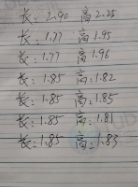 长: 2.90 高 2.25
长: 1.77 高 1.95
长: 1.77 高 1.96
长: 1.85 高: 1.82
长: 1.85 高: 1.85
长: 1.85 高: 1.81
长: 1.85 高: 1.83